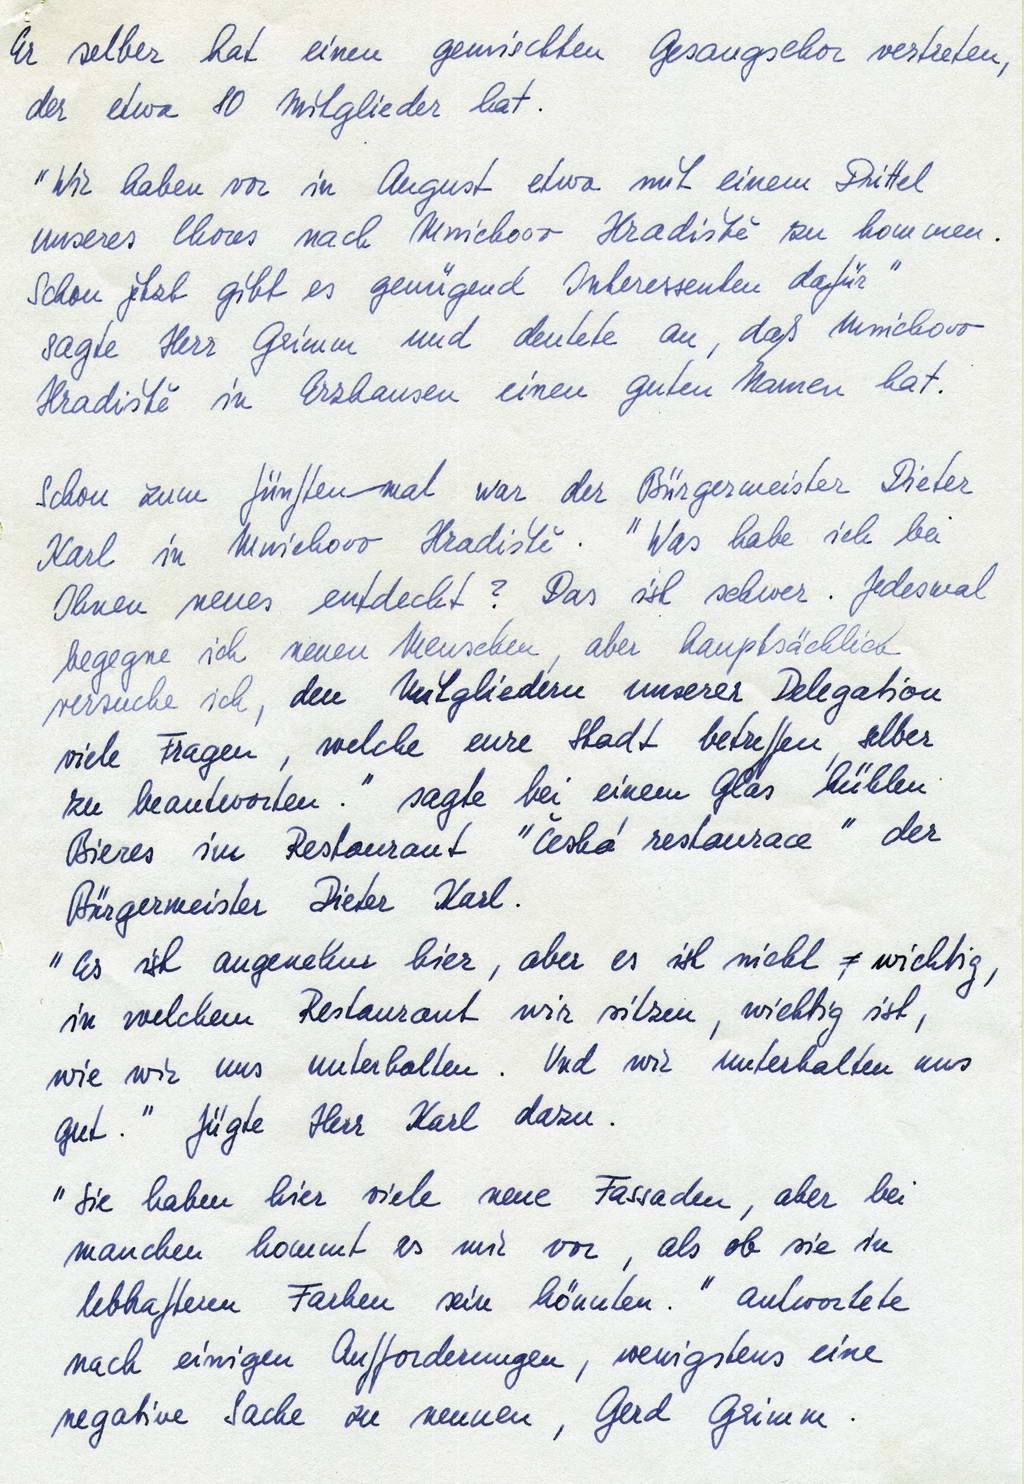 Er selber hat einen gemischten Gesangschor vertreten,
der etwa 80 Mitglieder hat.
"Wir haben vor in August etwa mit einem Drittel
unseres Chores nach Mnichovo Hradiště zu kommen.
Schon jetzt gibt es genügend Interessenten dafür"
sagte Herr Grimm und deutete an, daß Mnichovo
Hradiště in Erzhausen einen guten Namen hat.
Schon zum fünften mal war der Bürgermeister Dieter
Karl in Mnichovo Hradiště. "Was habe ich bei
Ihnen neues entdeckt? Das ist schwer. Jedesmal
begegne ich neuen Menschen, aber hauptsächlich
versuche ich, den Mitgliedern unserer Delegation
viele Fragen, welche eure Stadt betreffen, selber
zu beantworten." sagte bei einem Glas kühlen
Bieres im Restaurant "Česká restaurace" der
Bürgermeister Dieter Karl.
"Es ist angenehm hier, aber es ist nicht wichtig,
in welchem Restaurant wir sitzen, wichtig ist,
wie wir uns unterhalten. Und wir unterhalten uns
gut." fügte Herr Karl dazu.
"Sie haben hier viele neue Fassaden, aber bei
manchen kommt es mir vor, als ob sie in
lebhafteren Farben sein könnten." antwortete
nach einigen Aufforderungen, wenigstens eine
negative Sache zu nennen, Gerd Grimm.